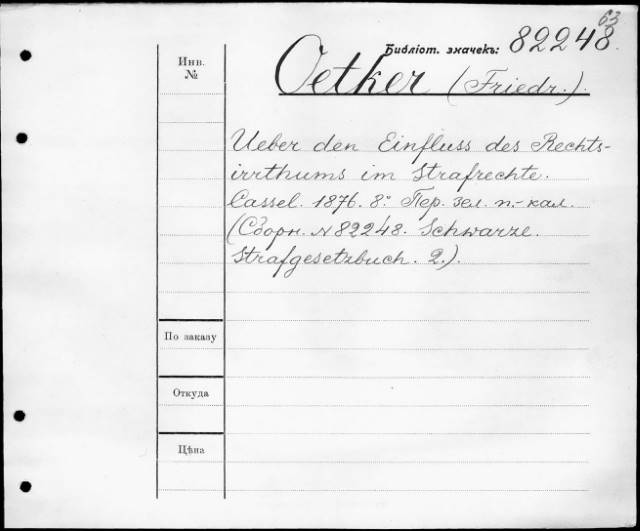 63
Библіот. значекъ: 82248.
Инв.
№
Oetker (Friedr.).
Ueber den Einfluss des Rechts-
irrthums im Strafrechte.
Cassel. 1876. 8º Пер. зел. п.-кал.
(Сборн. № 82248. Schwarze.
Strafgesetzbuch. 2.).
По заказу
Откуда
Цѣна